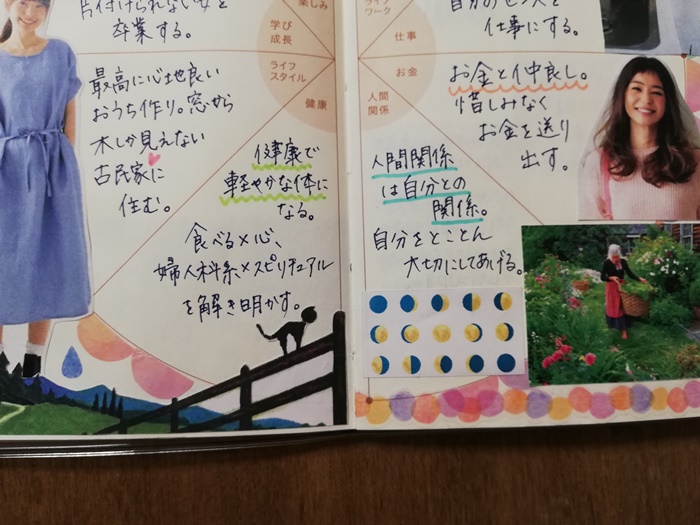 片付けられない女を
卒業する。
学び
成長
楽しみ
ライフ
スタイル
健康
最高に心地良い
おうち作り。窓から
木しか見えない
古民家に
住む。
健康で
軽やかな体に
なる。
食べる×心、
婦人科系×スピリチュアル
を解き明かす。
ライフ
ワーク
仕事
お金
人間
関係
自分のセンスを
仕事にする。
お金と仲良し。
惜しみなく
お金を送り
出す。
人間関係
は自分との
関係。
自分をとことん
大切にしてあげる。